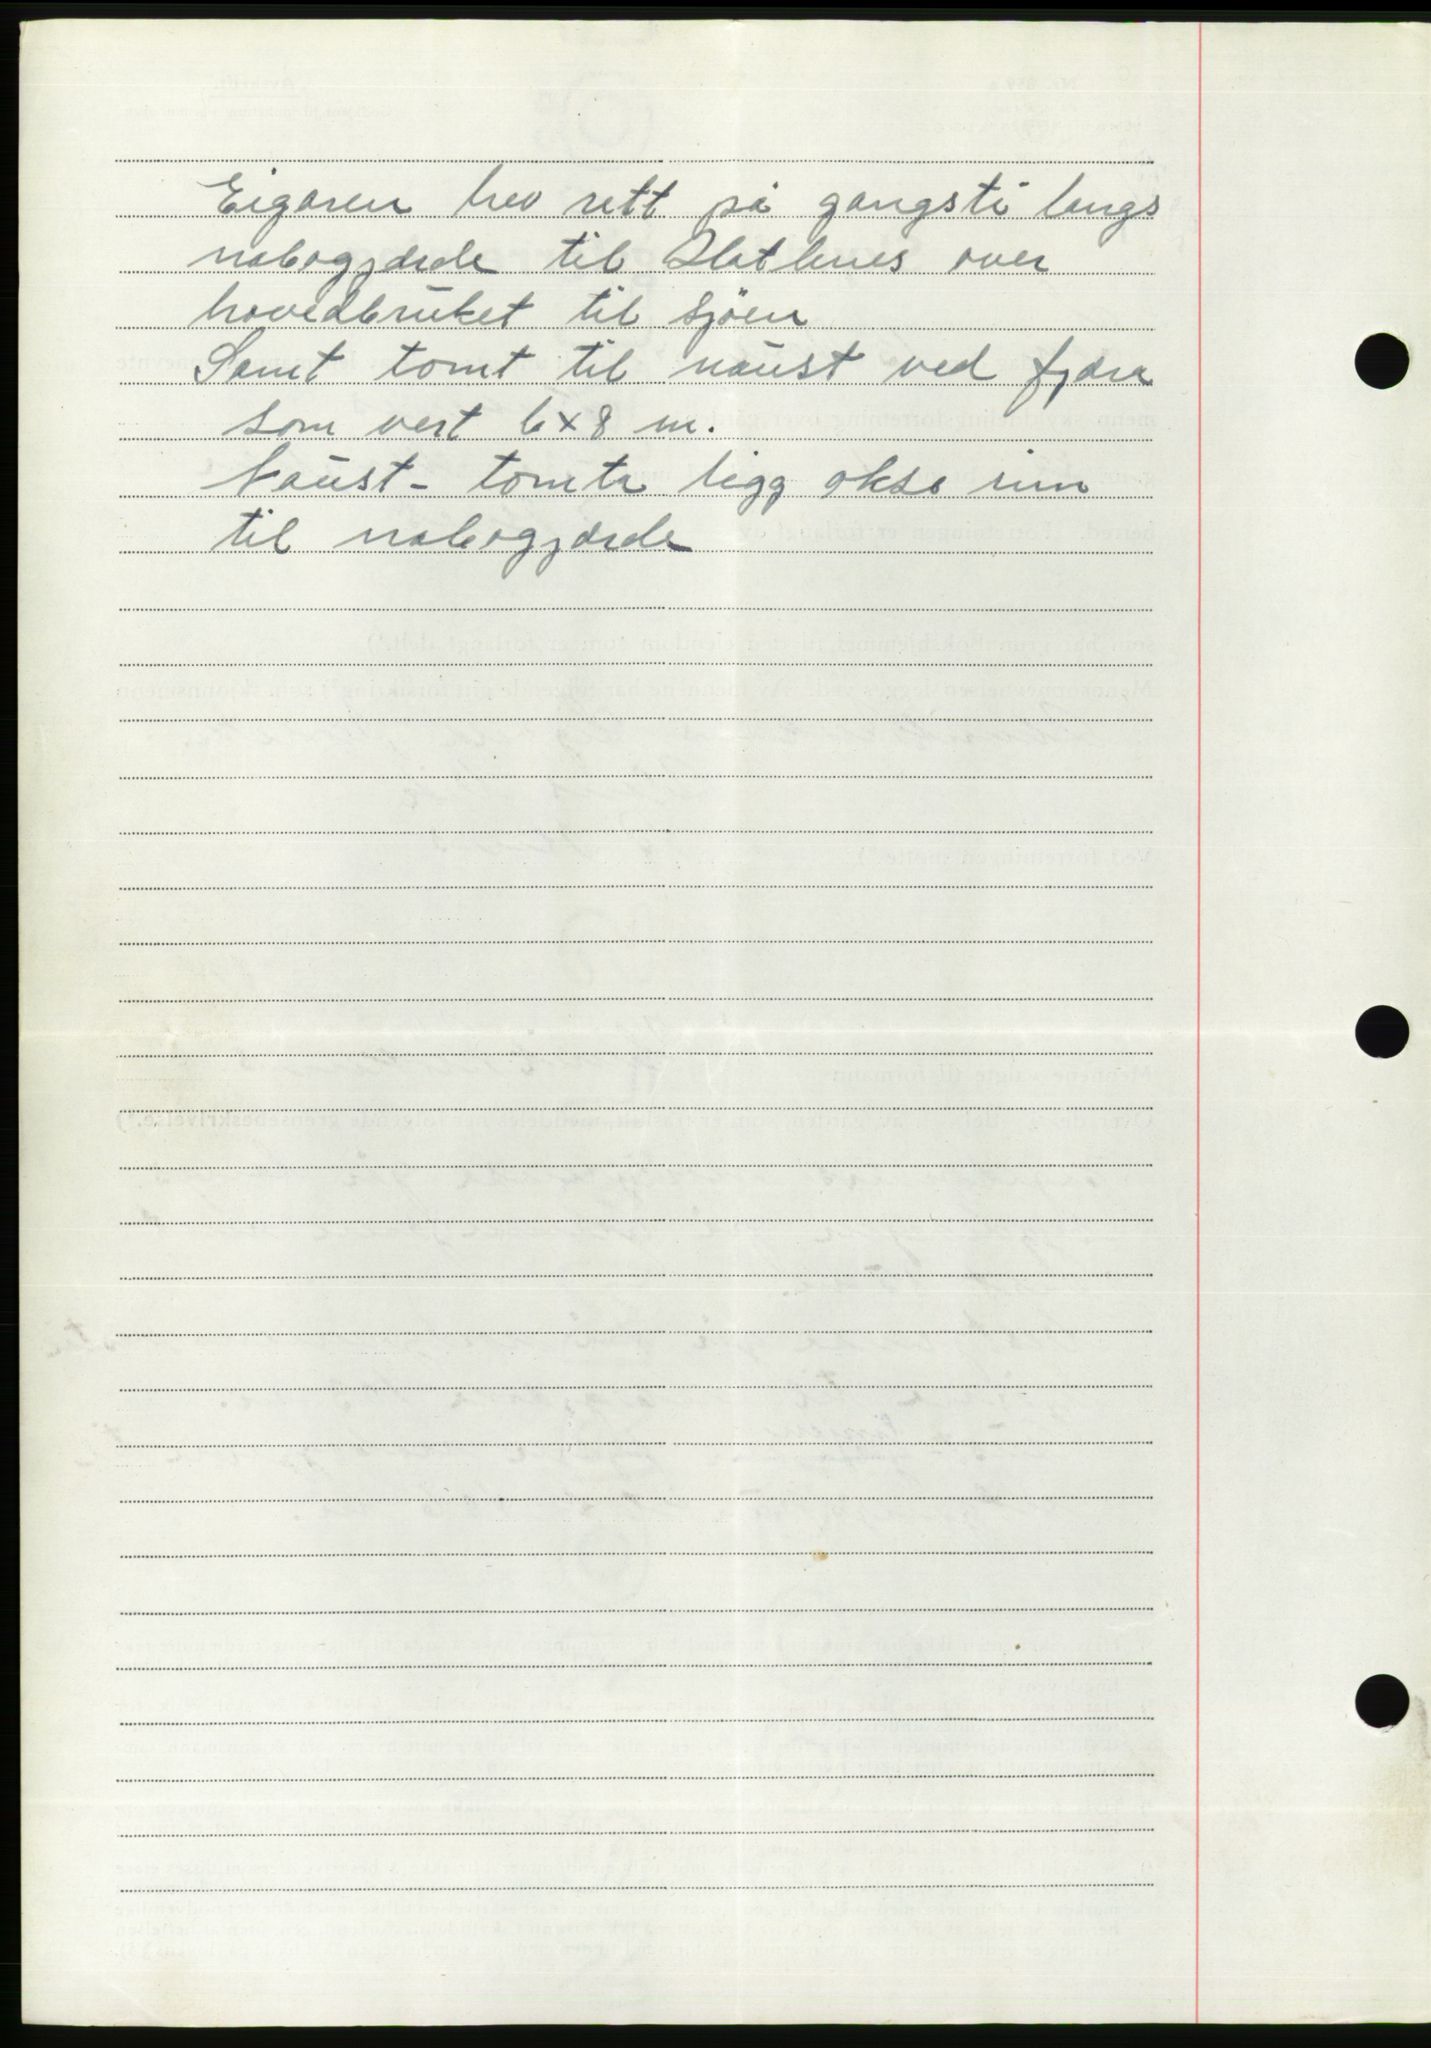 Eigaren hev rett på gangsti langs
nabogjærde til Hatlenes over
hovedbruket til sjöen
Samt tomt til naust ved fjæra
som vert 6x8 m.
Naust- tomta ligg okso inn
til nabogjærde